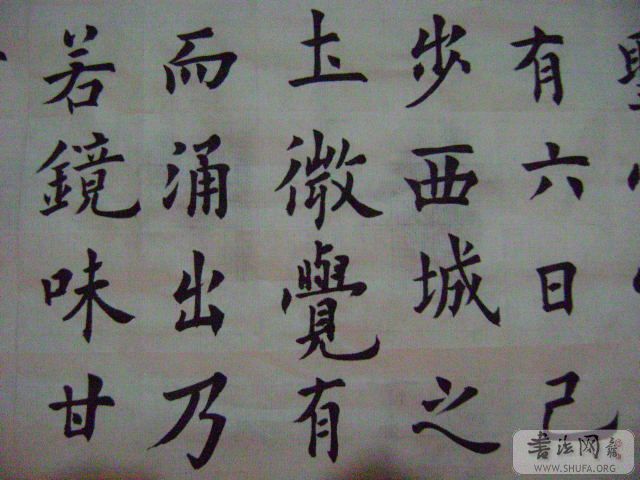 有六日己
步西城之
土微覺有
而涌出乃
若鏡味甘
書法网
WWW.SHUFA.ORG